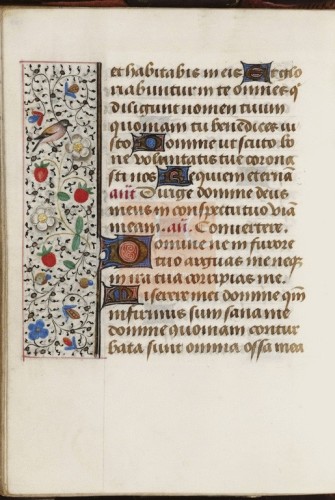 et habitabis in eis Et glo
riabuntur in te omnes q̄
diligunt nomen tuum
quoniam tu benedices iu
sto Domine ut scuto bo
ne voluntatis tue corona
sti nos Requiem eternā
an̄. Dirige domine deus
meus in conspectu tuo viā
meam. an̄. Convertere.
Domine ne in furore
tuo arguas me neq̄
in ira tua corripias me.
Miserere mei domine qm̄
infirmus sum sana me
domine quoniam contur
bata sunt omnia ossa mea